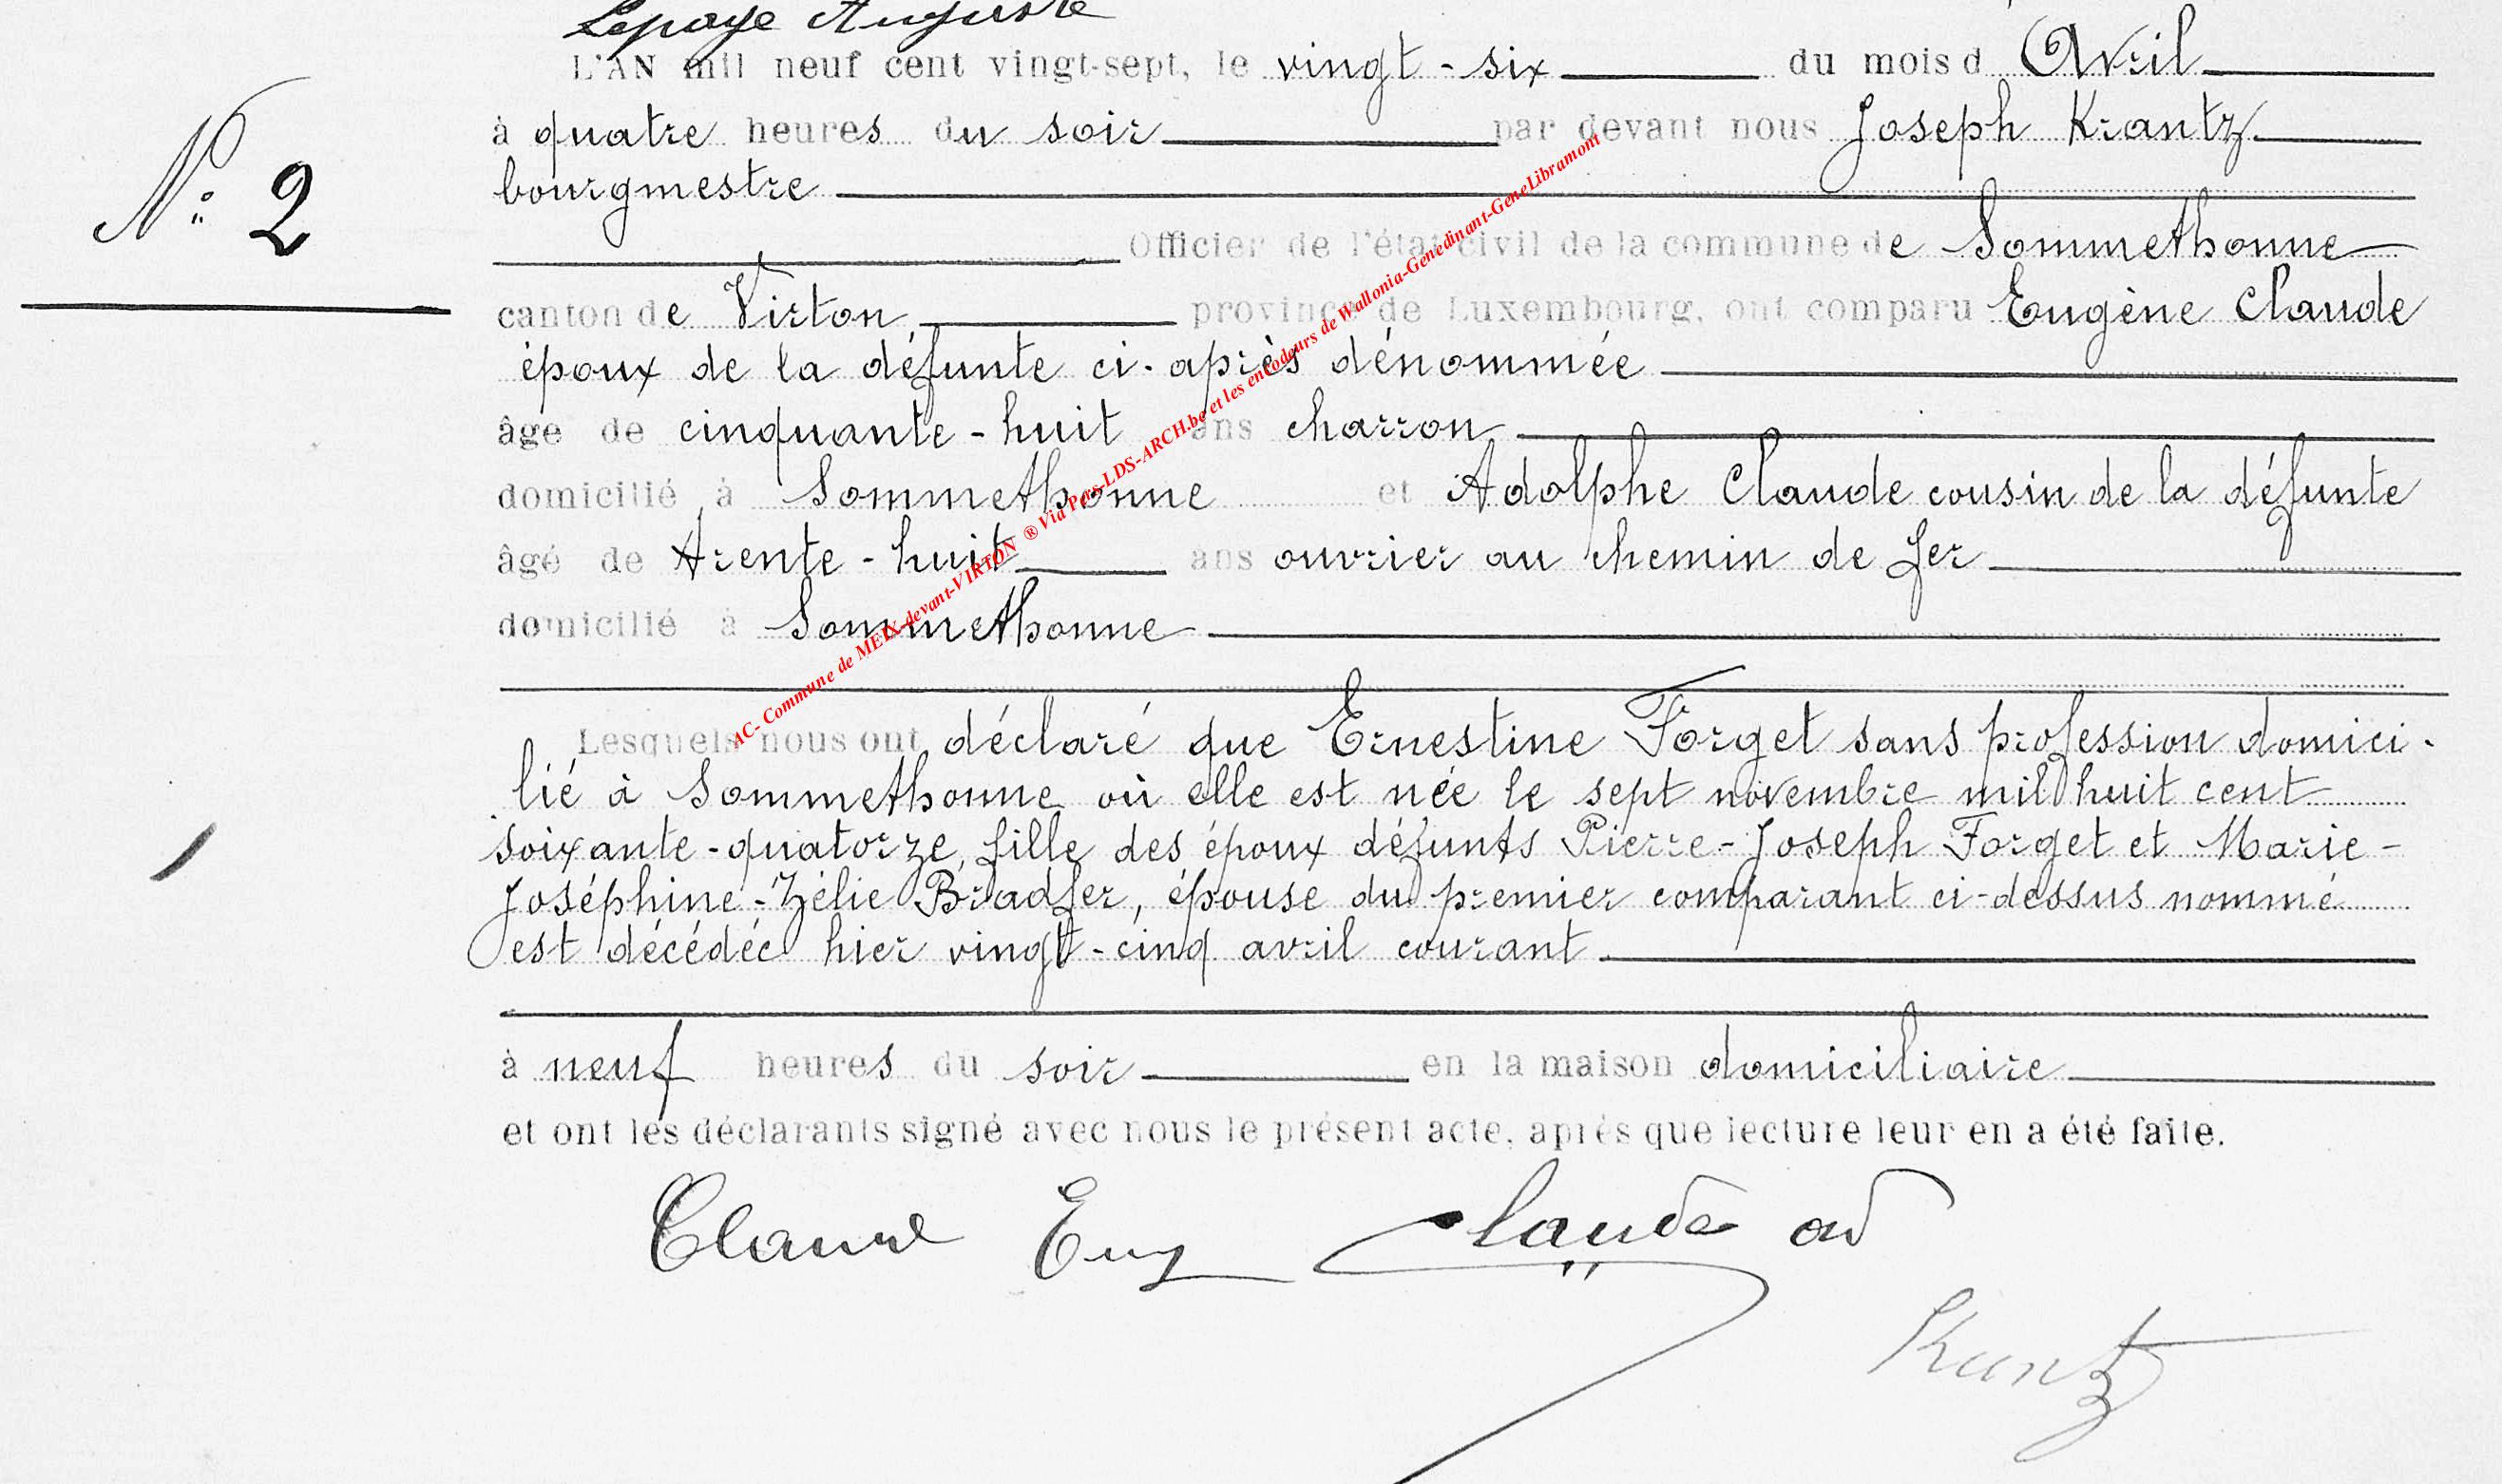 Lepage Auguste
L'AN mil neuf cent vingt-sept, le vingt-six du mois d'Avril
à quatre heures du soir par devant nous Joseph Krantz
bourgmestre
N° 2
Officier de l'état civil de la commune de Sommethonne
canton de Virton province de Luxembourg, ont comparu Eugène Claude
époux de la défunte ci-après dénommée
âgé de cinquante-huit ans charron
domicilié à Sommethonne et Adolphe Claude cousin de la défunte
âgé de trente-huit ans ouvrier au chemin de fer
domicilié à Sommethonne
AC- Commune de MEIX-devant-VIRTON ® Via Pers-LDS-ARCH.be et les encodeurs de Wallonia-Genedinant-GeneLibramont
Lesquels nous ont déclaré que Ernestine Forget sans profession domici-
lié à Sommethonne où elle est née le sept novembre mil huit cent
soixante-quatorze, fille des époux défunts Pierre-Joseph Forget et Marie-
Joséphine-Zélie Bradfer, épouse du premier comparant ci-dessus nommé
est décédée hier vingt-cinq avril courant
à neuf heures du soir en la maison domiciliaire
et ont les déclarants signé avec nous le présent acte, après que lecture leur en a été faite.
Claude Eug Claude ad
Krantz